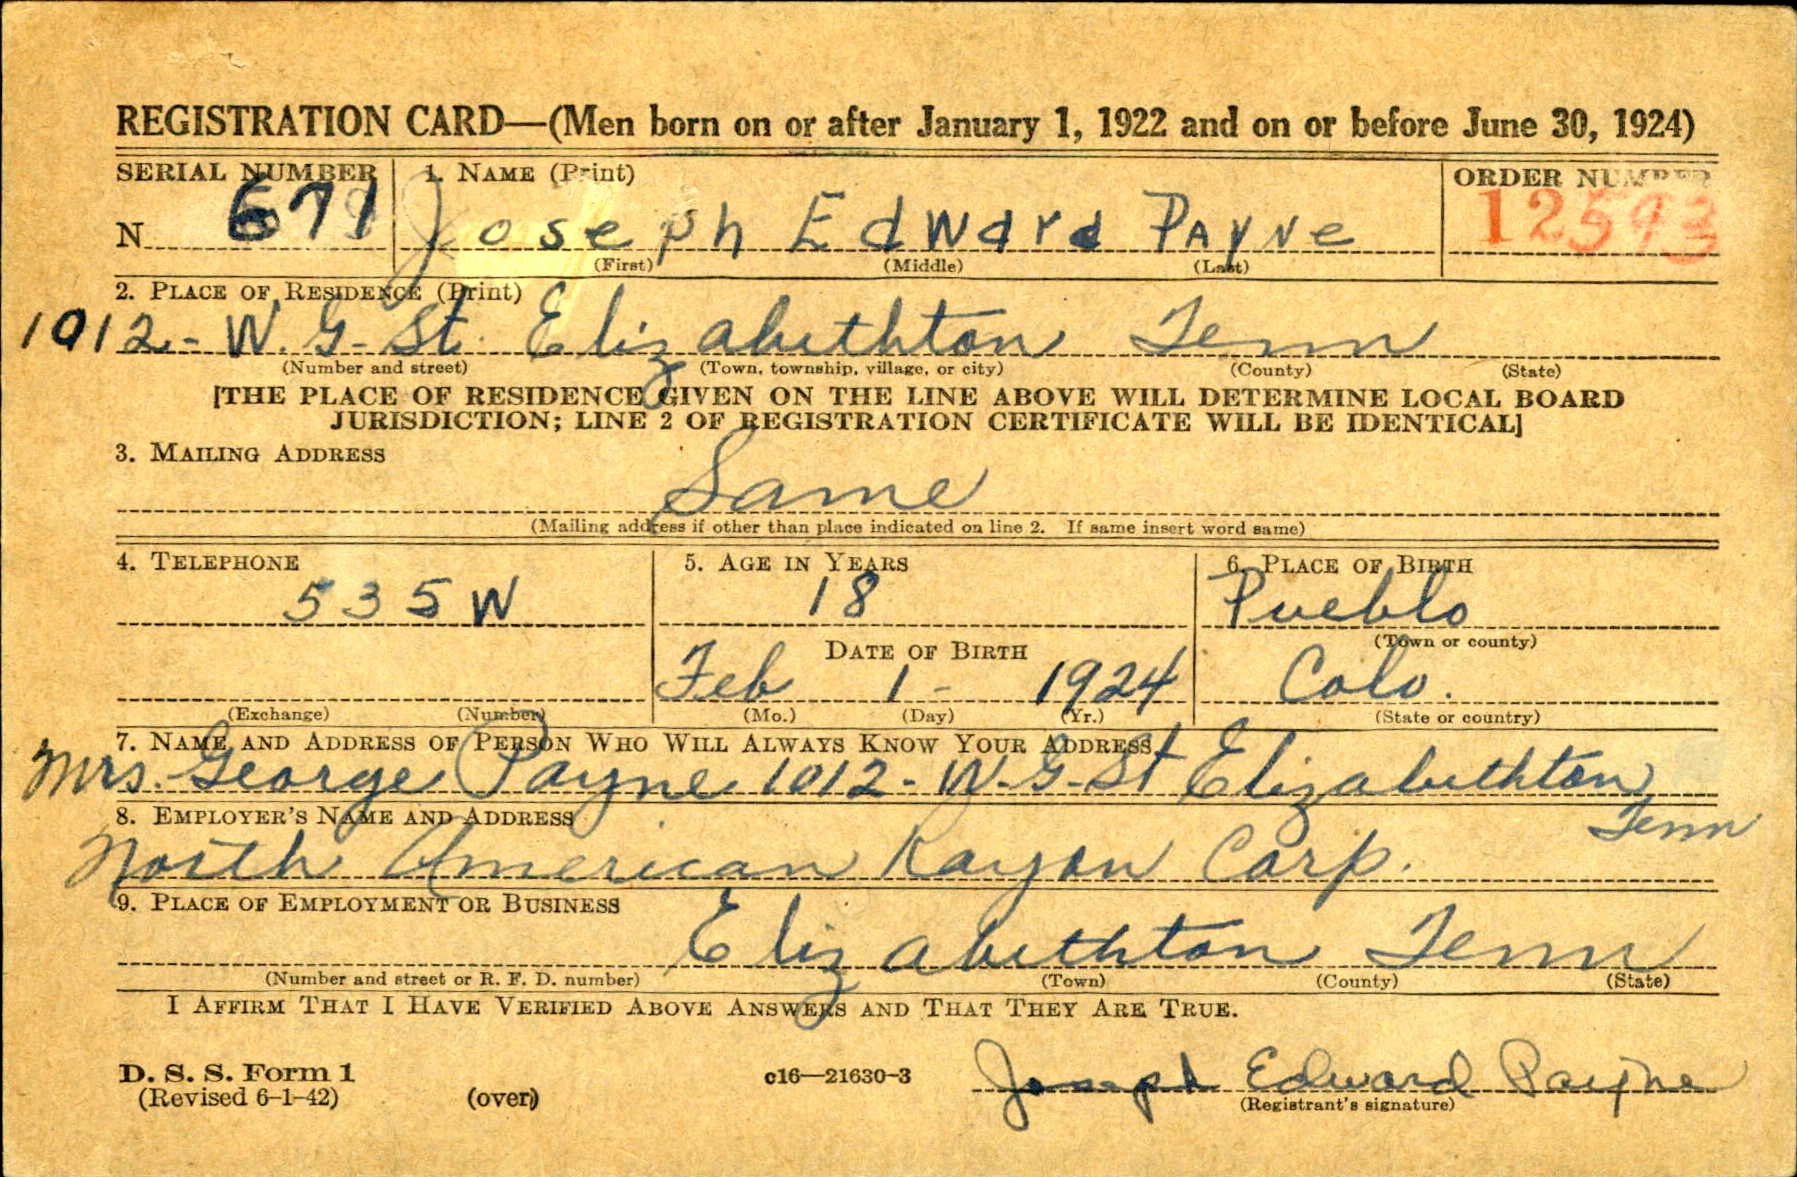 REGISTRATION CARD—(Men born on or after January 1, 1922 and on or before June 30, 1924)
SERIAL NUMBER 1. NAME (Print) ORDER NUMBER
N 671 Joseph Edward Payne 12593
(First) (Middle) (Last)
2. PLACE OF RESIDENCE (Print)
1012- W. G- St. Elizabethton Tenn
(Number and street) (Town, township, village, or city) (County) (State)
[THE PLACE OF RESIDENCE GIVEN ON THE LINE ABOVE WILL DETERMINE LOCAL BOARD
JURISDICTION; LINE 2 OF REGISTRATION CERTIFICATE WILL BE IDENTICAL]
3. MAILING ADDRESS
Same
(Mailing address if other than place indicated on line 2. If same insert word same)
4. TELEPHONE 5. AGE IN YEARS 6. PLACE OF BIRTH
535W 18 Pueblo
(Town or county)
DATE OF BIRTH
Feb 1- 1924 Colo.
(Exchange) (Number) (Mo.) (Day) (Yr.) (State or country)
7. NAME AND ADDRESS OF PERSON WHO WILL ALWAYS KNOW YOUR ADDRESS
Mrs. George Payne 1012- W. G- St Elizabethton
Tenn
8. EMPLOYER'S NAME AND ADDRESS
North American Rayon Corp.
9. PLACE OF EMPLOYMENT OR BUSINESS
Elizabethton Tenn
(Number and street or R. F. D. number) (Town) (County) (State)
I AFFIRM THAT I HAVE VERIFIED ABOVE ANSWERS AND THAT THEY ARE TRUE.
D. S. S. Form 1 c16—21630-3 Joseph Edward Payne
(Revised 6-1-42) (over) (Registrant's signature)